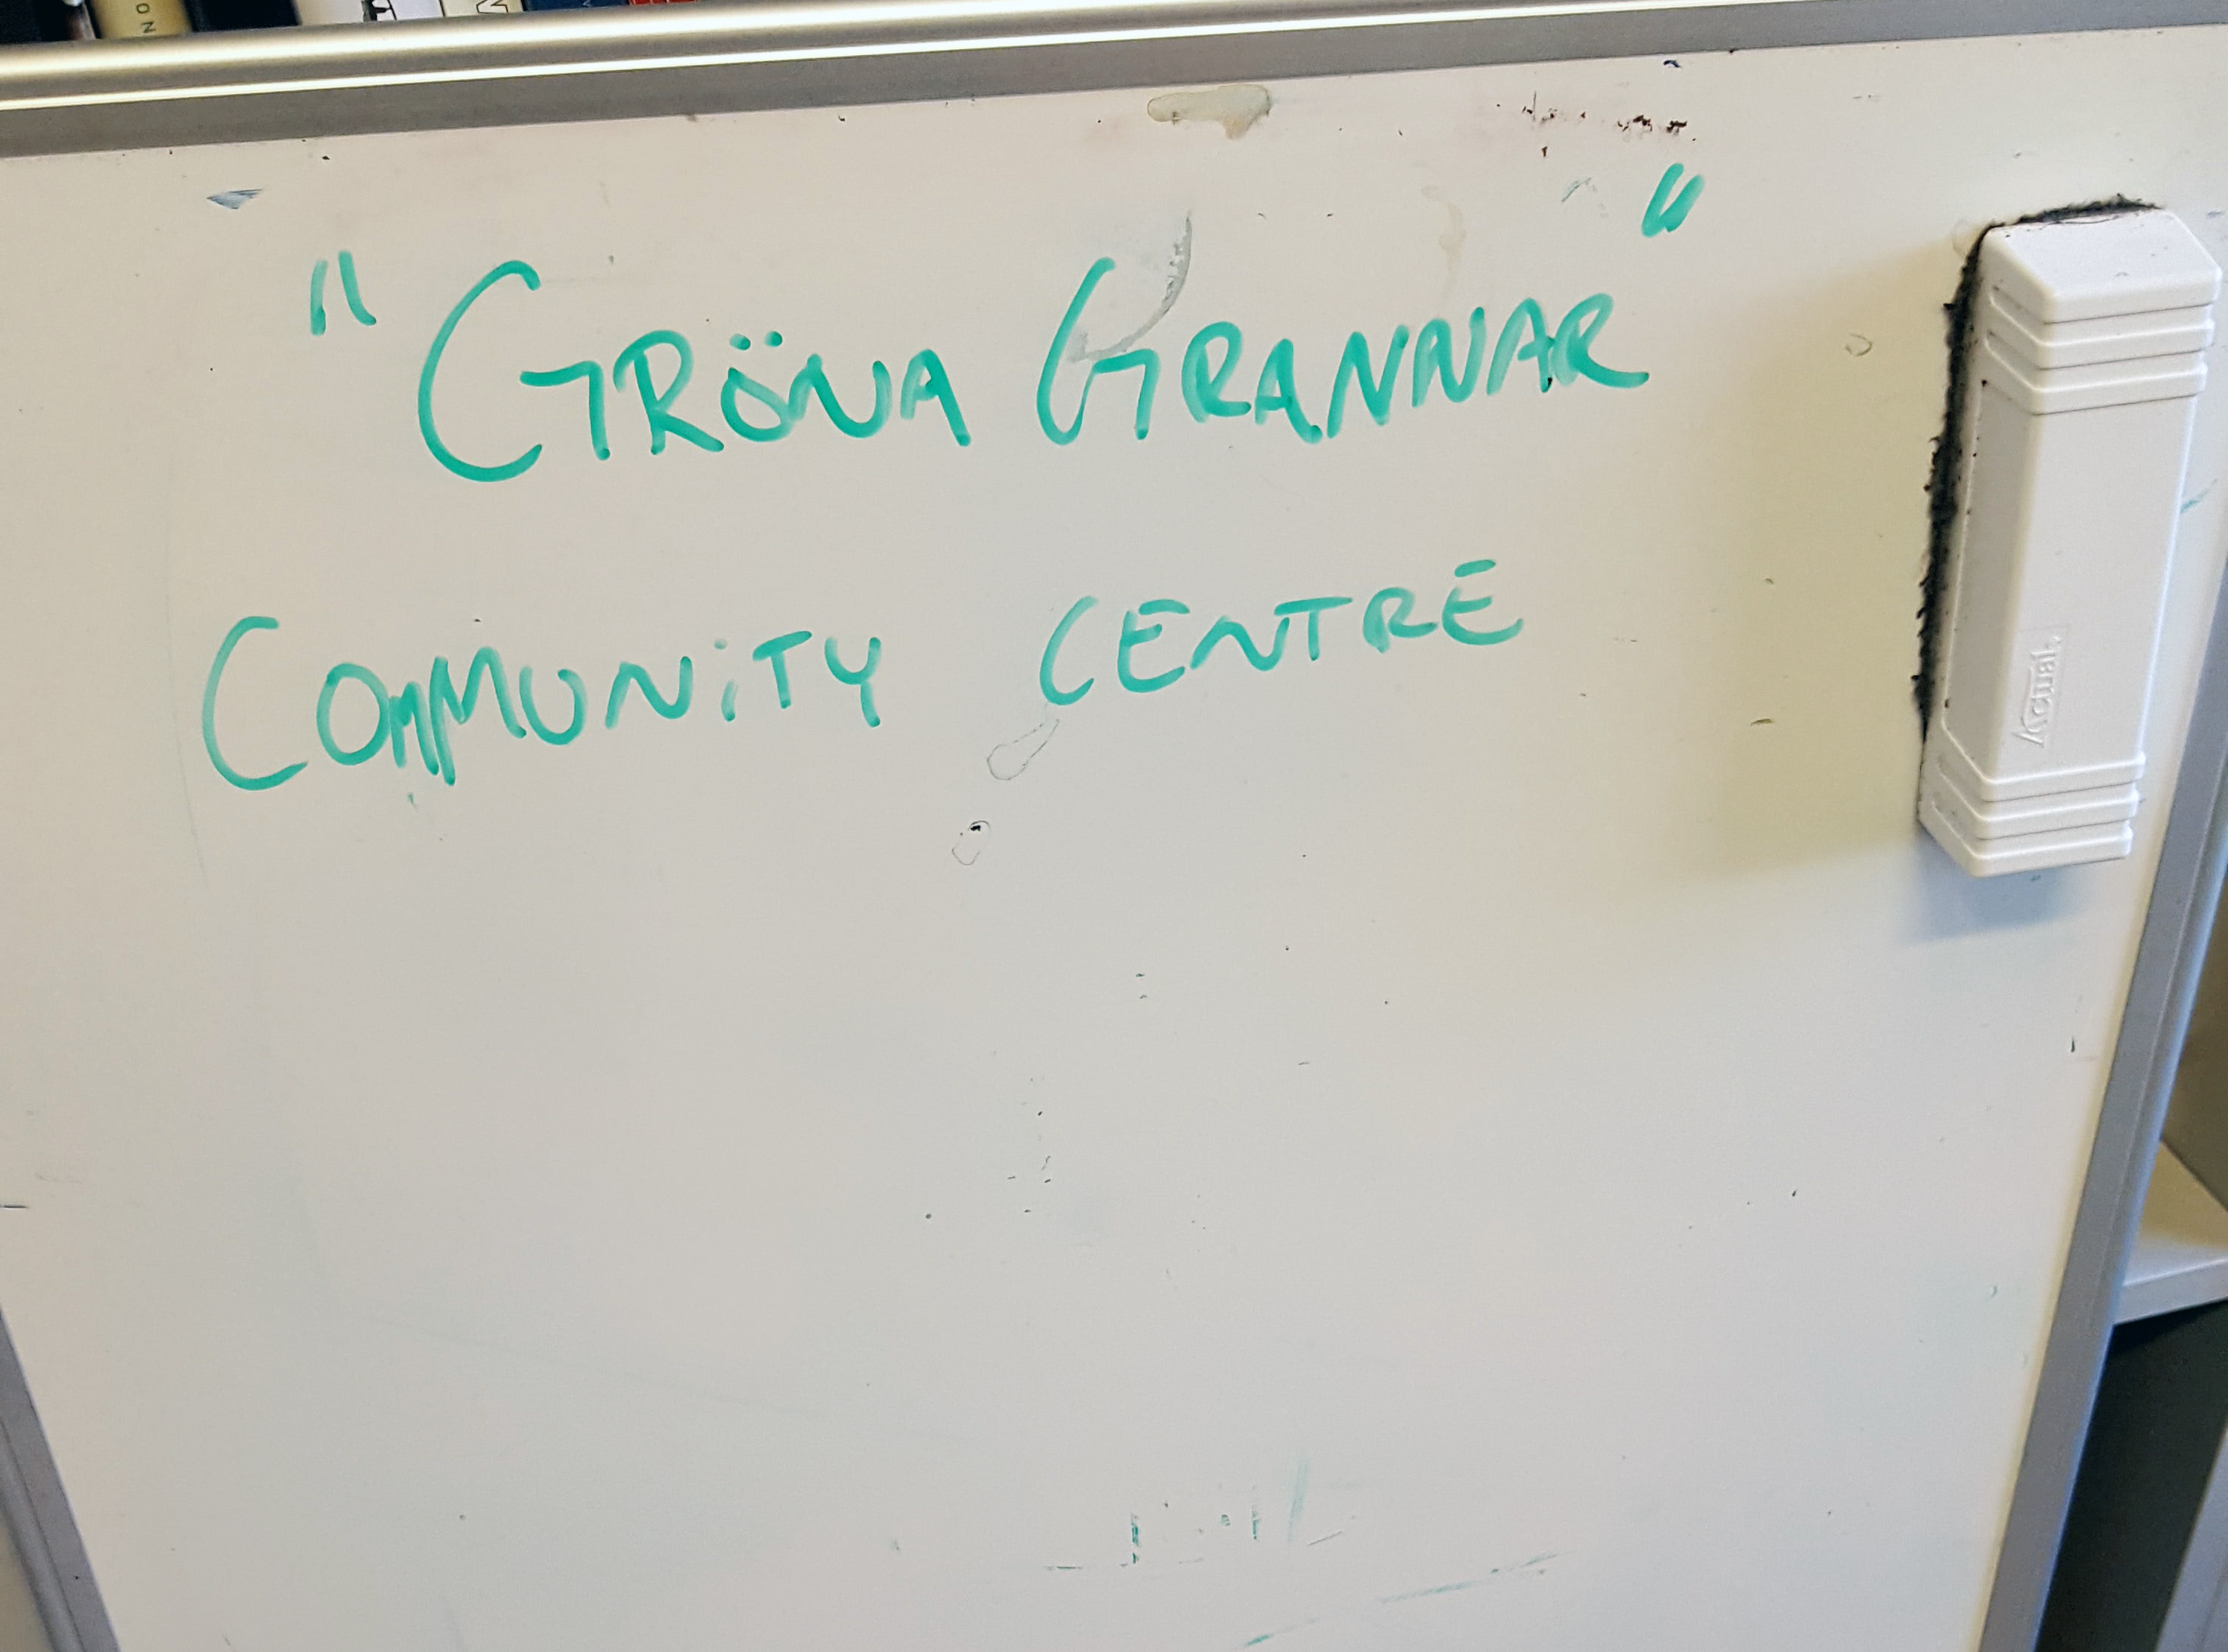 "GRÖNA GRANNAR"
COMMUNiTY CENTRE
Actual